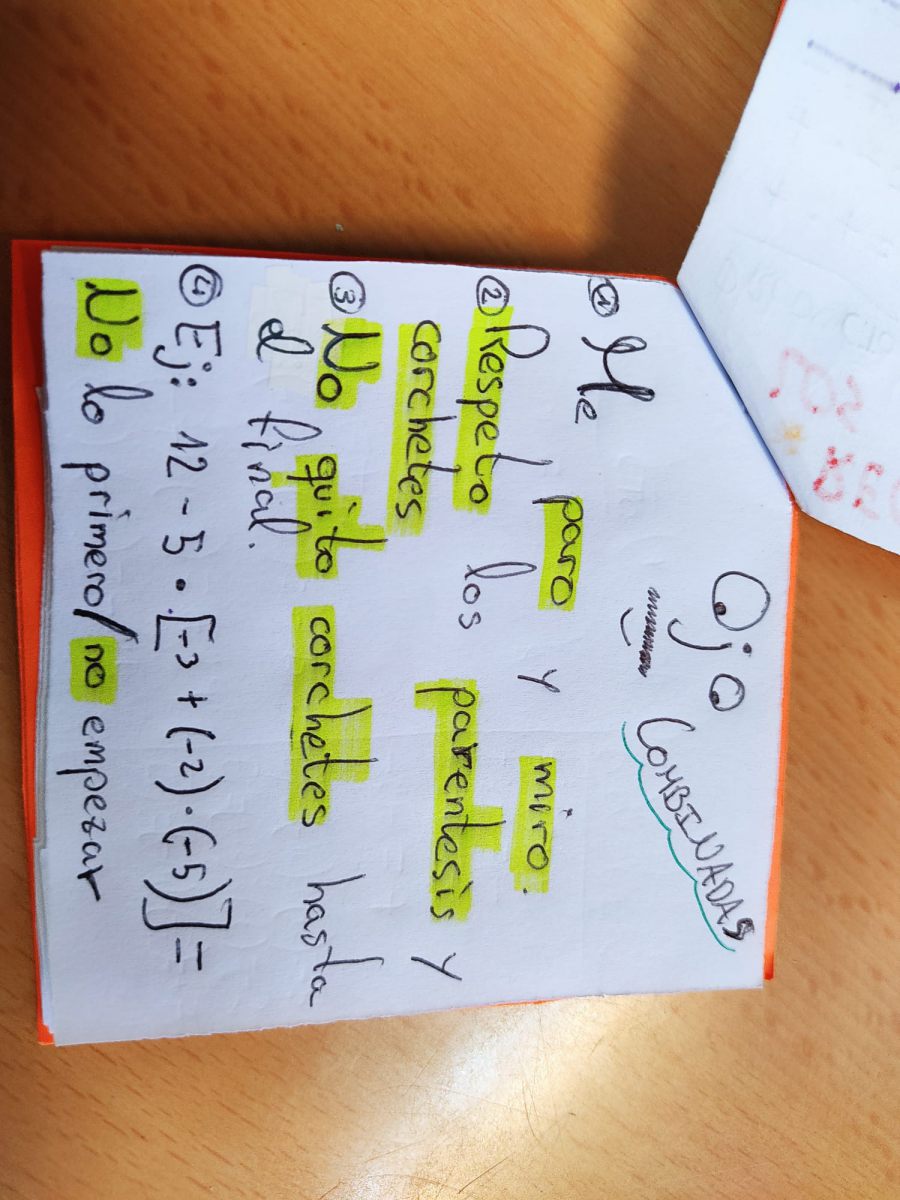 Ojo COMBINADAS
① Me paro y miro.
② Respeto los parentesis y
corchetes
③ No quito corchetes hasta
el final.
④ Ej: 12 - 5 · [-3 + (-2) · (-5)] =
No lo primero/no empezar
LOS